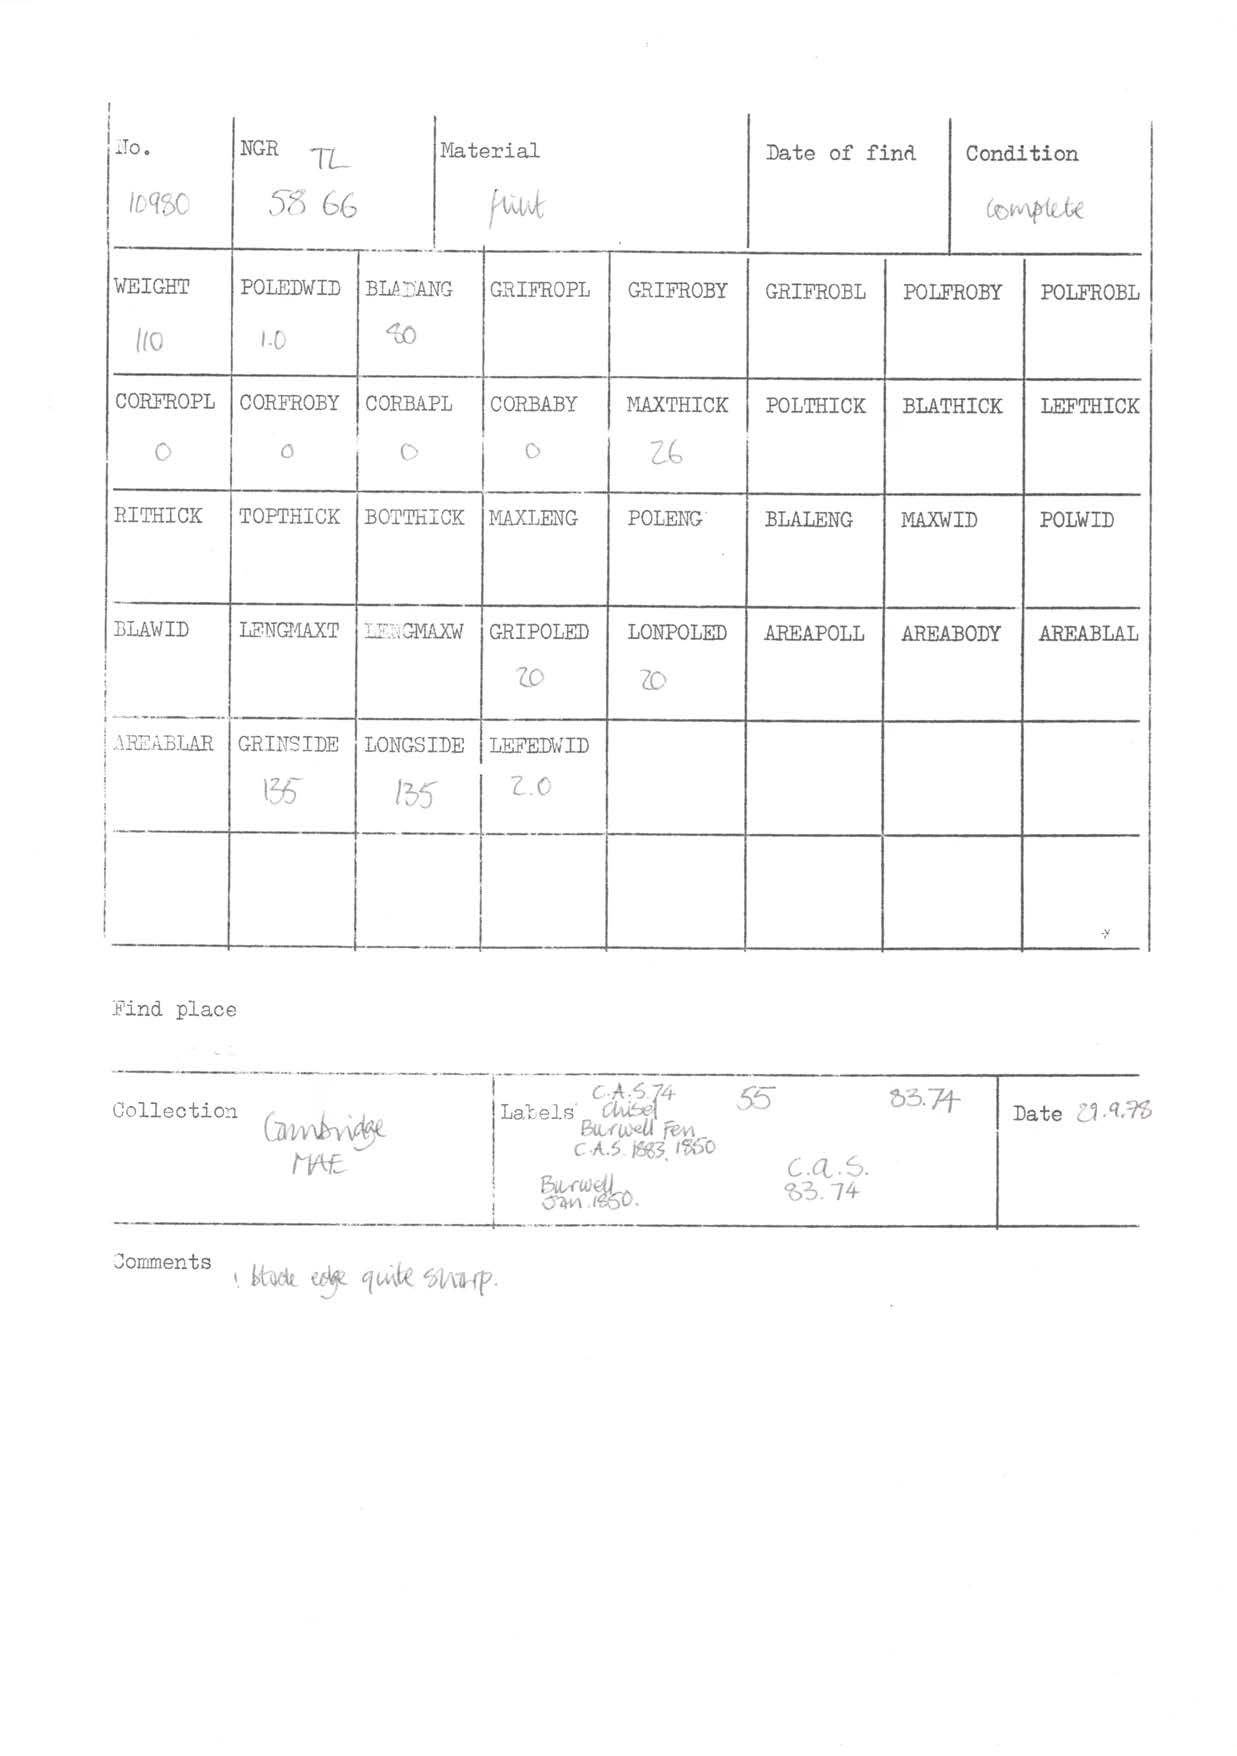 No. NGR TL Material Date of find Condition
10980 58 66 flint complete
WEIGHT POLEDWID BLADANG GRIFROPL GRIFROBY GRIFROBL POLFROBY POLFROBL
110 1.0 80
CORFROPL CORFROBY CORBAPL CORBABY MAXTHICK POLTHICK BLATHICK LEFTHICK
0 0 0 0 26
RITHICK TOPTHICK BOTTHICK MAXLENG POLENG BLALENG MAXWID POLWID
BLAWID LENGMAXT LENGMAXW GRIPOLED LONPOLED AREAPOLL AREABODY AREABLAL
20 20
AREABLAR GRINSIDE LONGSIDE LEFEDWID
135 135 2.0
Find place
Collection Cambridge
MAE
Labels C.A.S. 74 55 83.74
Chisel
Burwell Fen
C.A.S. 1883, 1850
C.A.S.
83.74
Burwell
Jan. 1850.
Date 29.9.78
Comments blade edge quite sharp.